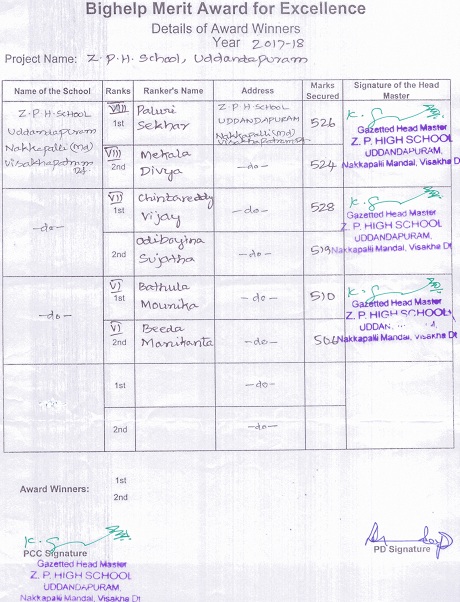 Bighelp Merit Award for Excellence
Details of Award Winners
Year 2017-18
Project Name: Z.P.H. School, Uddandapuram
Name of the School Ranks Ranker's Name Address Marks Secured Signature of the Head Master
Z.P.H.SCHOOL
Uddandapuram
Nakkapalli (md)
Visakhapatnam
VIII 1st Paluri Sekhar
Z.P.H.SCHOOL
UDDANDAPURAM
Nakkapalli (md)
Visakhapatnam
526
Gazetted Head Master
Z. P. HIGH SCHOOL
UDDANDAPURAM,
Nakkapalli Mandal, Visakha Dt
VIII 2nd Mekala Divya -do- 524
-do-
VII 1st Chintareddy Vijay -do- 528
Gazetted Head Master
Z. P. HIGH SCHOOL
UDDANDAPURAM,
Nakkapalli Mandal, Visakha Dt
2nd Odiboyina Sujatha -do- 519
-do-
VI 1st Bathula Mounika -do- 510
Gazetted Head Master
Z. P. HIGH SCHOOL
UDDAN
Nakkapalli Mandal, Visakha Dt
VI 2nd Beeda Manikanta -do- 506
1st -do-
2nd -do-
Award Winners: 1st
2nd
PCC Signature
PD Signature
Gazetted Head Master
Z. P. HIGH SCHOOL
UDDANDAPURAM,
Nakkapalli Mandal, Visakha Dt